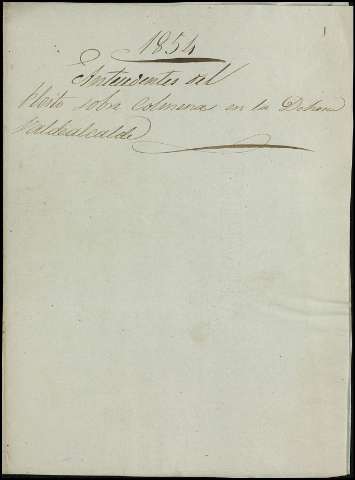 1
1854
Antecedentes del
Pleito sobre Colmena en la Dehesa
Valdealcalde